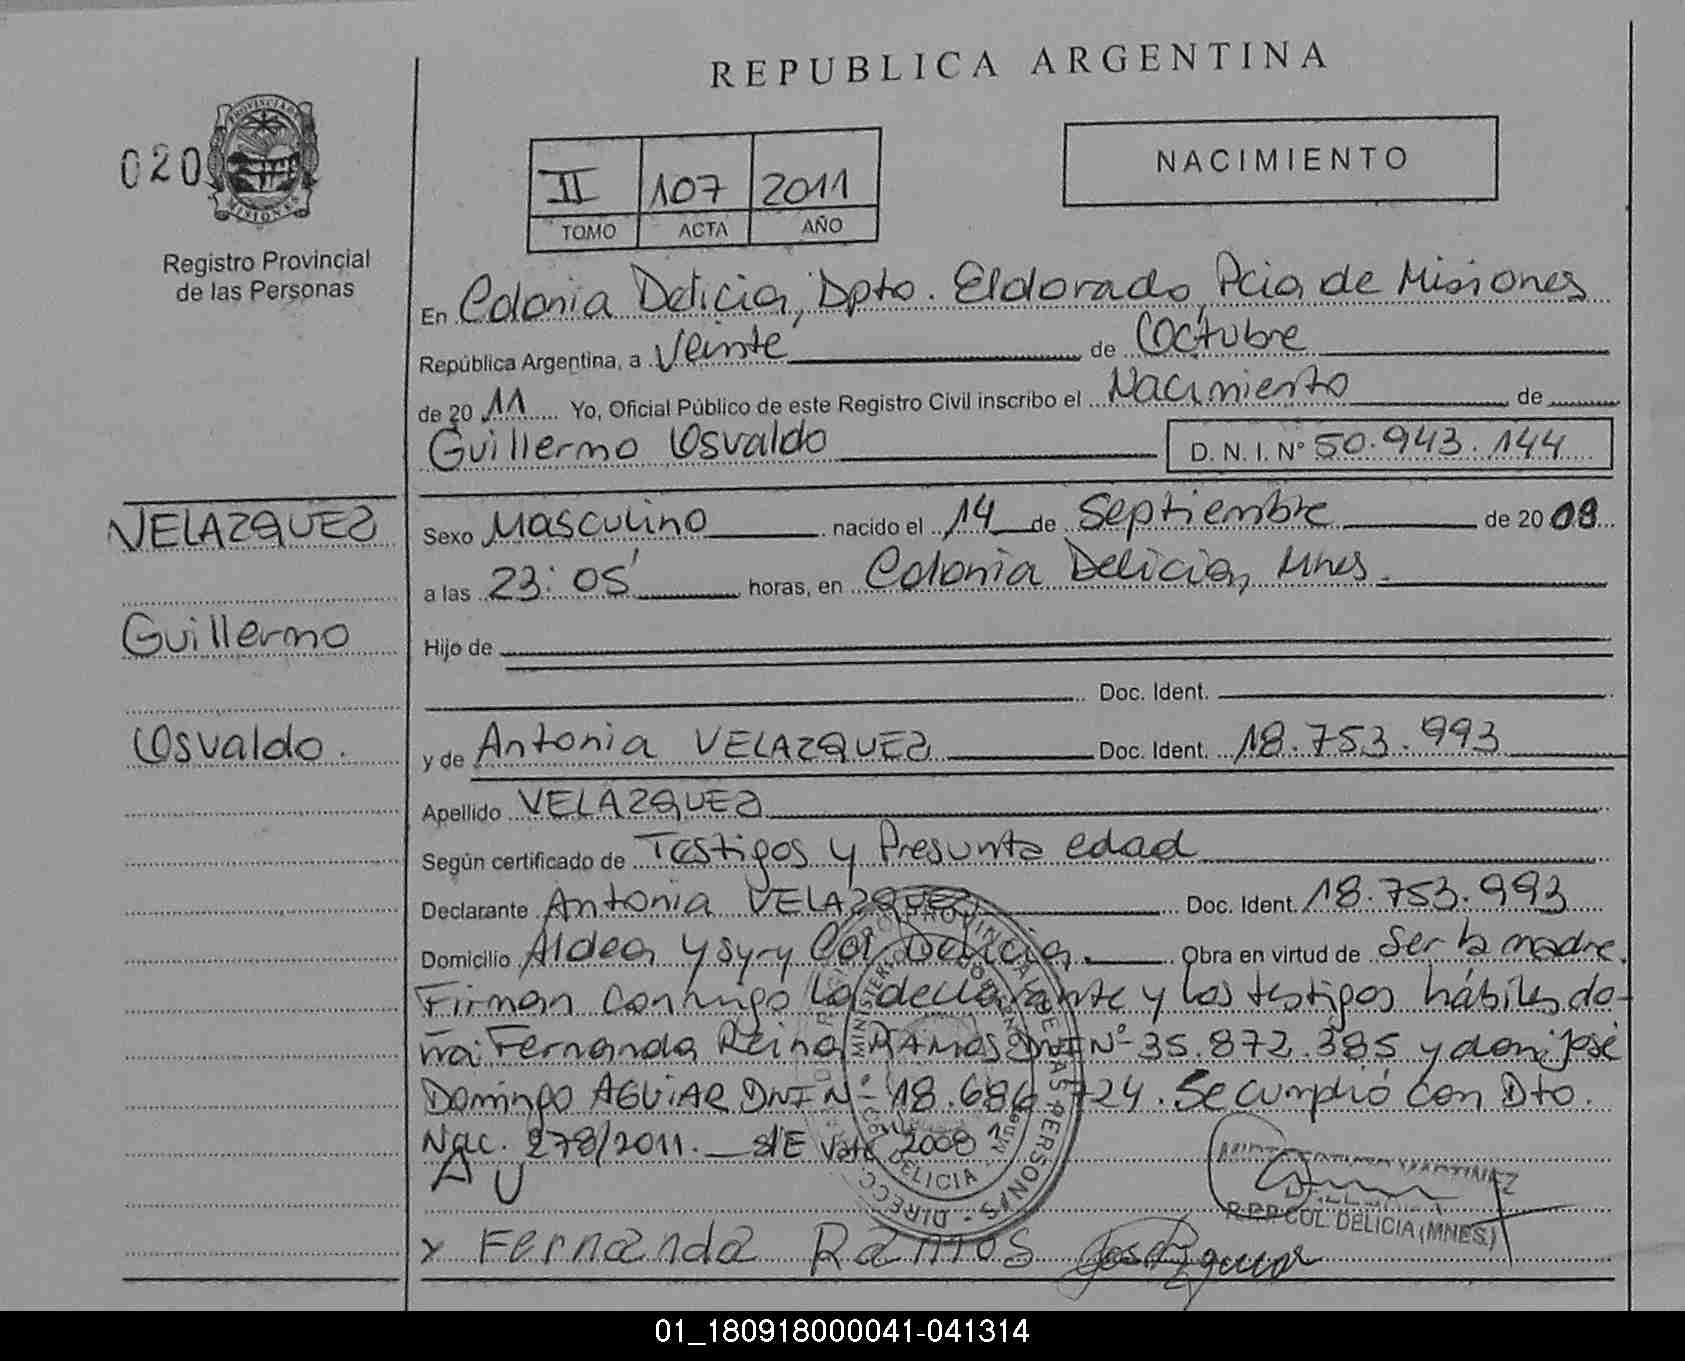 REPUBLICA ARGENTINA
020
PROVINCIA DE
MISIONES
Registro Provincial
de las Personas
II 107 2011
TOMO ACTA AÑO
NACIMIENTO
En Colonia Delicia, Dpto. Eldorado, Pcia de Misiones
República Argentina, a Veinte de Octubre
de 2011 Yo, Oficial Público de este Registro Civil inscribo el Nacimiento de
Guillermo Osvaldo D.N.I. Nº 50.943.144
VELAZQUEZ
Guillermo
Osvaldo.
Sexo Masculino nacido el 14 de Septiembre de 2008
a las 23:05' horas, en Colonia Delicia, Mnes.
Hijo de
Doc. Ident.
y de Antonia VELAZQUEZ Doc. Ident. 18.753.993
Apellido VELAZQUEZ
Según certificado de Testigos y Presunta edad
Declarante Antonia VELAZQUEZ Doc. Ident. 18.753.993
Domicilio Aldea Ysyry Col. Delicia Obra en virtud de Ser la madre.
Firman conmigo la declarante y los testigos hábiles do-
ña: Fernanda Reina RAMOS DNI Nº 35.872.385 y don: José
Domingo AGUIAR DNI Nº 18.686.724. Se cumplió con Dto.
Nac. 278/2011. S/E Vale 2008
A U
MARTINEZ
R.P.P COL. DELICIA (MNES.)
x Fernanda Ramos José Aguiar
01_180918000041-041314